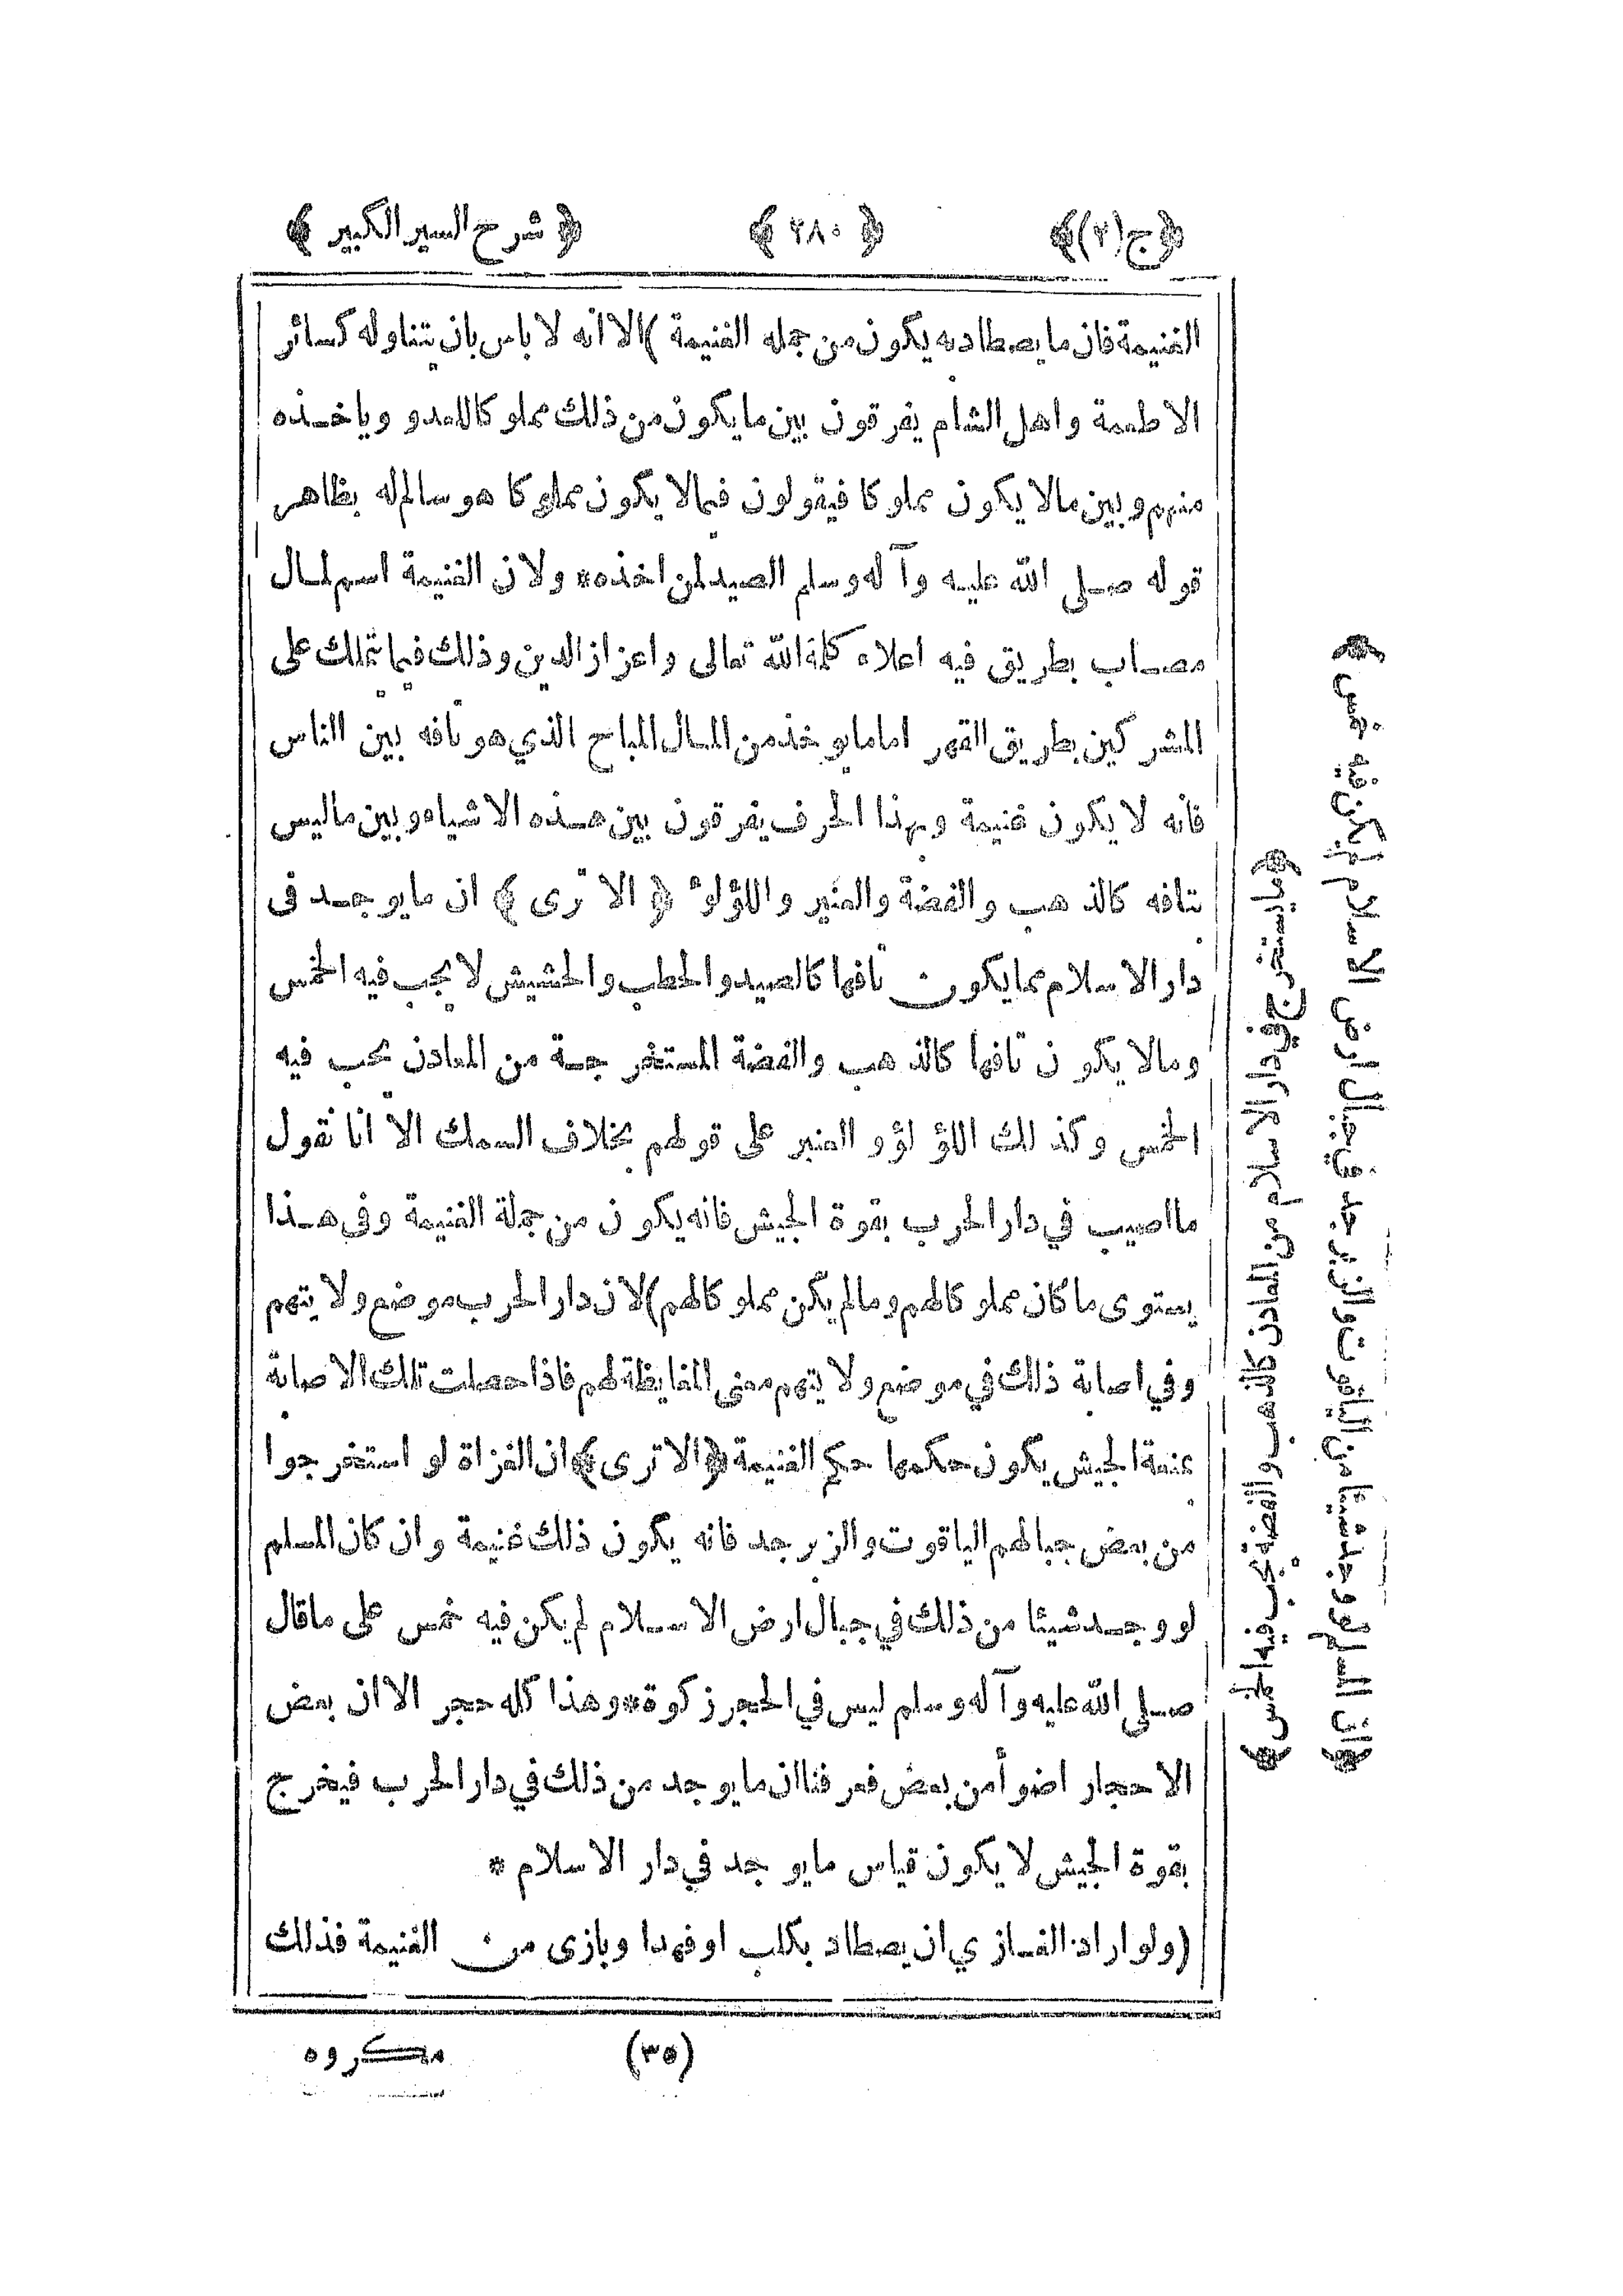 ﴿ج(٢)﴾ ﴿٢٨٠﴾ ﴿شرح السير الكبير﴾
الغنيمة فان ما يصطاد به يكون من جمله الغنيمة )الا انه لا باس بان يتناوله كسائر
الاطعمة واهل الشام يفرقون بين ما يكون من ذلك مملوكا للعدو وياخذه
منهم وبين مالا يكون مملوكا فيقولون فيما لا يكون مملوكا هو سالم له بظاهر
قوله صلى الله عليه وآله وسلم الصيد لمن اخذه* ولان الغنيمة اسم لمال
مصاب بطريق فيه اعلاء كلمة الله تعالى واعزاز الدين وذلك فيما يتملك على
المشركين بطريق القهر اما ما يوخذ من المال المباح الذي هو تافه بين الناس
فانه لا يكون غنيمة وبهذا الحرف يفرقون بين هذه الاشياء وبين ما ليس
بتافه كالذهب والفضة والعنبر واللؤلؤ ﴿الا ترى﴾ ان ما يوجد فى
دار الاسلام مما يكون تافها كالصيد والحطب والحشيش لا يجب فيه الخمس
ومالا يكون تافها كالذهب والفضة المستخرجة من المعادن يجب فيه
الخمس وكذلك اللؤلؤ والعنبر على قولهم بخلاف السمك الا انا نقول
ما اصيب في دار الحرب بقوة الجيش فانه يكون من جملة الغنيمة وفى هذا
يستوى ما كان مملوكا لهم وما لم يكن مملوكا لهم)لان دار الحرب موضع ولايتهم
وفي اصابة ذلك في موضع ولايتهم معنى المغايظة لهم فاذا حصلت تلك الاصابة
بمنعة الجيش يكون حكمها حكم الغنيمة﴿الا ترى﴾ان الغزاة لو استخرجوا
من بعض جبالهم الياقوت والزبرجد فانه يكون ذلك غنيمة وان كان المسلم
لو وجد شيئا من ذلك في جبال ارض الاسلام لم يكن فيه خمس على ما قال
صلى الله عليه وآله وسلم ليس في الحجر زكوة*وهذا كله حجر الا ان بعض
الاحجار اضوأ من بعض فعرفنا ان ما يوجد من ذلك في دار الحرب فيخرج
بقوة الجيش لا يكون قياس ما يوجد في دار الاسلام *
(ولو اراد الغازي ان يصطاد بكلب او فهدا وبازى من الغنيمة فذلك
(٣٥) مكروه
﴿ما يستخرج في دار الاسلام من المعادن كالذهب والفضة يجب فيه الخمس﴾
﴿ان المسلم لو وجد شيئا من الياقوت والزبرجد في جبال ارض الاسلام لم يكن فيه خمس﴾